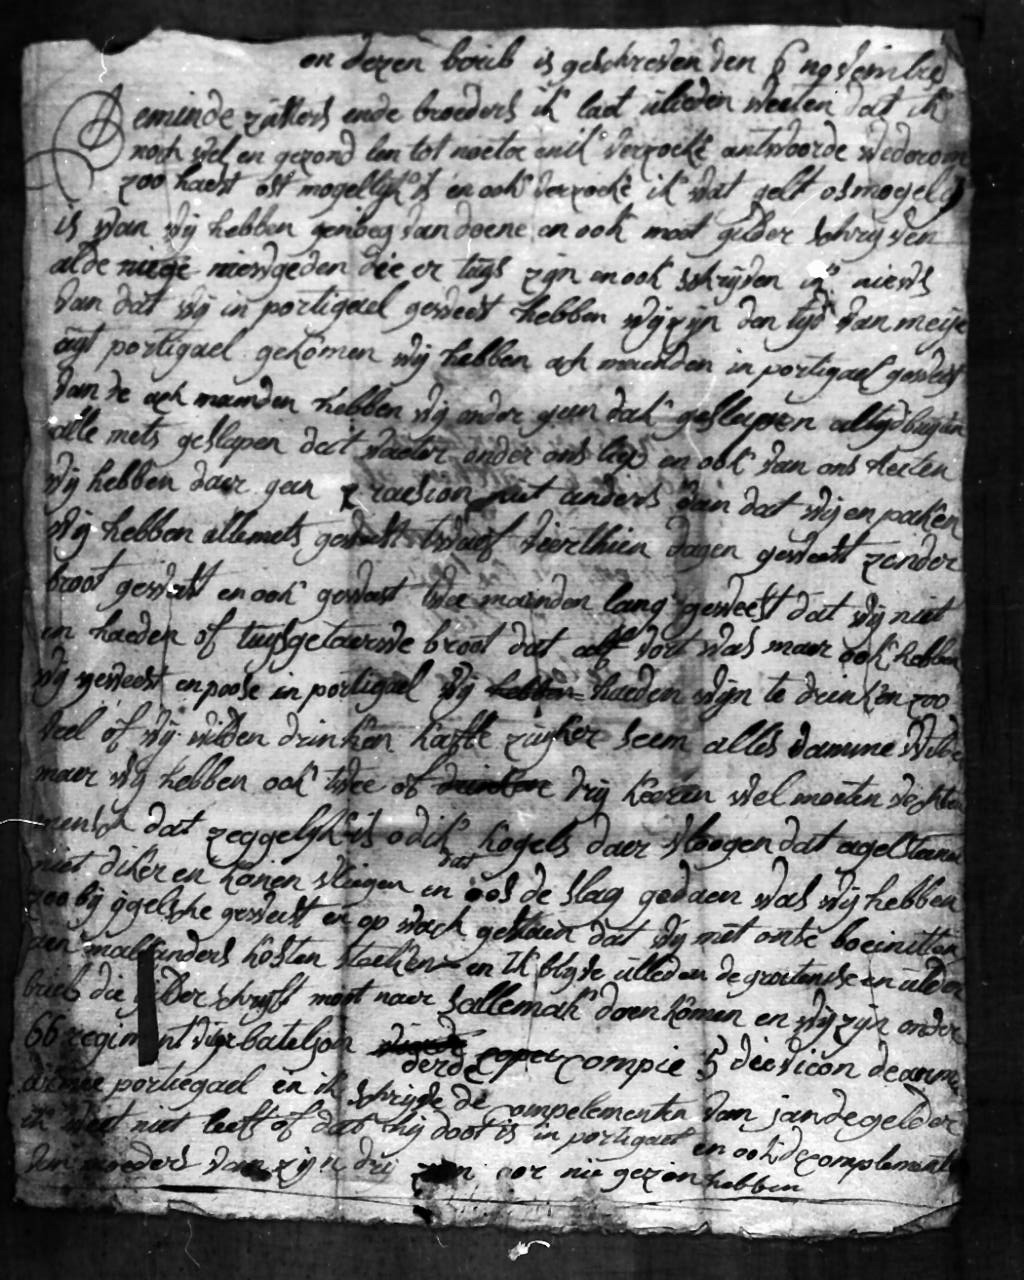 en dezen borib is geschreven den 6 november
Geminde zusters ende broeders ik laet ulieden weeten dat ik
noch wel en gezond ben tot noetoe en ik verzocke antwoorde wederom
zoo haest ost mogellijk is en ook verzocke ik wat gelt os mogelij
is wan wij hebben genoeg van doene en ook moet gilder schrijven
al de niewgeden die er tuijs zijn en ook schrijven ik niews
van dat wij in portigael geweest hebben wij zijn den tijd van meije
uijt portigael gekomen wij hebben ach maenden in portigael geweest
van de ach maenden hebben wij onder geen dak geslapen altijd buijten
alle mets geslapen dat waeter onder ons liep en ook van ons keerten
wij hebben daer gen raesion niet anders dan dat wij en paken
wij hebben allemets geweest twaelf veerthien dagen geweest zonder
broot geweest en ook geweest twe maenden lang geweest dat wij niet
en haeden of tuijsgetaerwe broot dat alf vort was maer ook hebben
wij geweest en poose in portigael wij haeden wijn te drinken zoo
veel of wij wilden drinken kaffe zuijker seem alles damme wilde
maer wij hebben ook twee of drij keeren wel moeten vechten
mensch dat zeggelijk is o dik kogels daer vloogen dat agelstenen
niet diker en konen vliegen en dat oos de slag gedaen was wij hebben
zoo bij ijgelsche geweest en op wach gestaen dat wij met onse boeinetten
aen malkanders kosten steeken en ik blijve ulleden de groetenise en ulden
brieb die gilder schrijft moet naer sallemak doen komen en wij zijn onder
66 regiment vijer bateljon
derde compie 5 deivicon de arme
armee portiegael en ik schrijve de compelementen van jan de gelder
ik weet niet leeft of dat hij doot is in portigael en ook de complementen
van moeders van zijn drij zoon oor nie gezien hebben